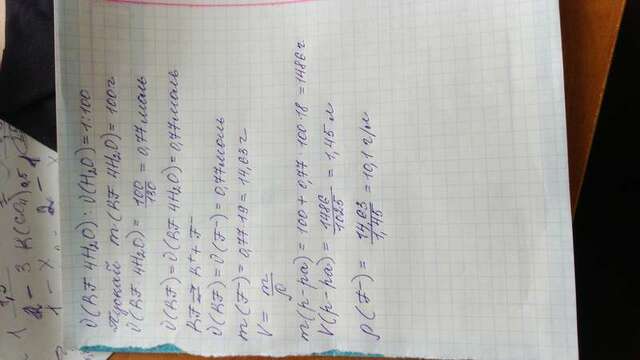 ν(RF·4H₂O) : ν(H₂O) = 1:100
Пускай m(RF·4H₂O) = 100 г
ν(RF·4H₂O) = 100/130 = 0,77 моль
ν(RF) = ν(RF·4H₂O) = 0,77 моль
RF ⇄ R⁺ + F⁻
ν(RF) = ν(F⁻) = 0,77 моль
m(F⁻) = 0,77·19 = 14,63 г
V = m/ρ
m(р-ра) = 100 + 0,77·100·18 = 1486 г
V(р-ра) = 1486/1025 = 1,45 л
ρ(F⁻) = 14,63/1,45 = 10,1 г/л